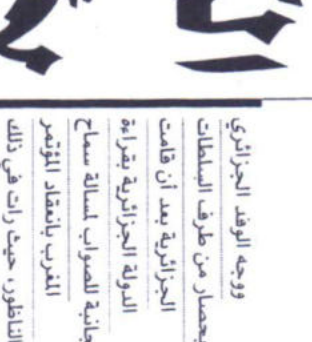 ووجه الوفد الجزائري
بحصار من طرف السلطات
الجزائرية بعد أن قامت
الدولة الجزائرية بقراءة
مجانبة للصواب لمسالة سماح
المغرب بانعقاد المؤتمر
الناظور، حيث رات في ذلك